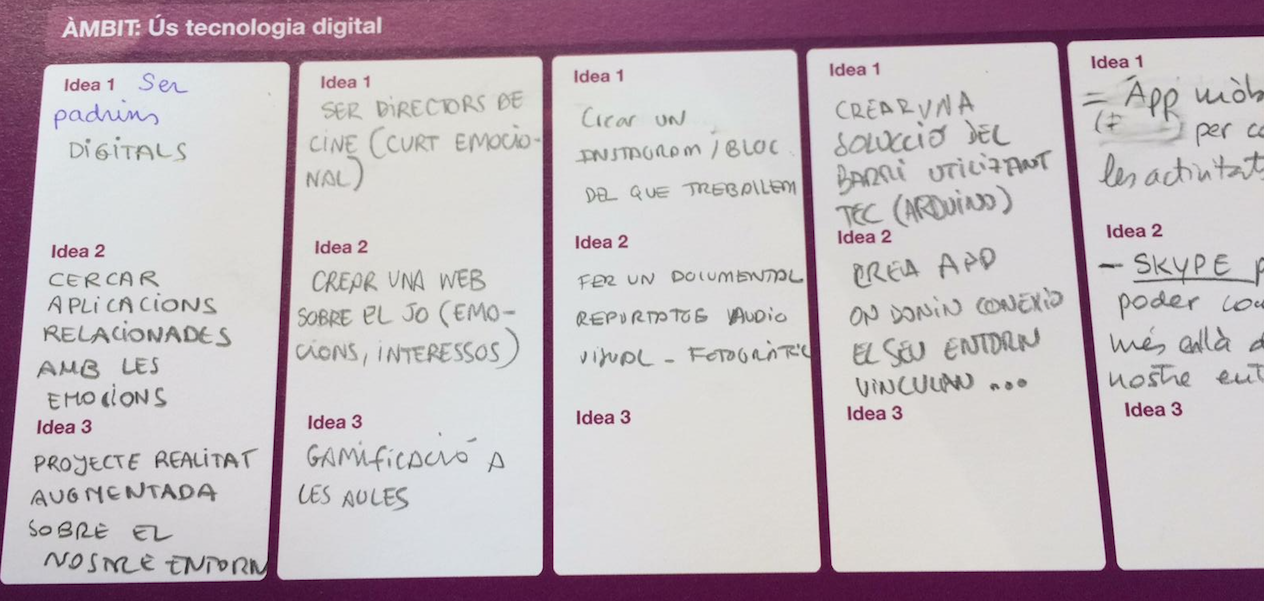 ÀMBIT: Ús tecnologia digital
Idea 1 Ser
padrins
DIGITALS
Idea 2
CERCAR
APLICACIONS
RELACIONADES
AMB LES
EMOCIONS
Idea 3
PROYECTE REALITAT
AUGMENTADA
SOBRE EL
NOSTRE ENTORN
Idea 1
SER DIRECTORS DE
CINE (CURT EMOCIO-
NAL)
Idea 2
CREAR UNA WEB
SOBRE EL JO (EMO-
CIONS, INTERESSOS)
Idea 3
GAMIFICACIÓ A
LES AULES
Idea 1
Crear UN
INSTAGRAM / BLOC
DEL QUE TREBALLEM
Idea 2
FER UN DOCUMENTAL
REPORTATGE AUDIO
VISUAL - FOTOGRÀFIC
Idea 3
Idea 1
CREAR UNA
SOLUCCIÓ DEL
BARRI UTILITZANT
TEC (ARDUINO)
Idea 2
CREA APP
ON DONIN CONEXIO
EL SEU ENTORN
VINCULAN ...
Idea 3
Idea 1
= App mòb
per
les activitats
Idea 2
- SKYPE p
poder
més enllà d
nostre ent
Idea 3